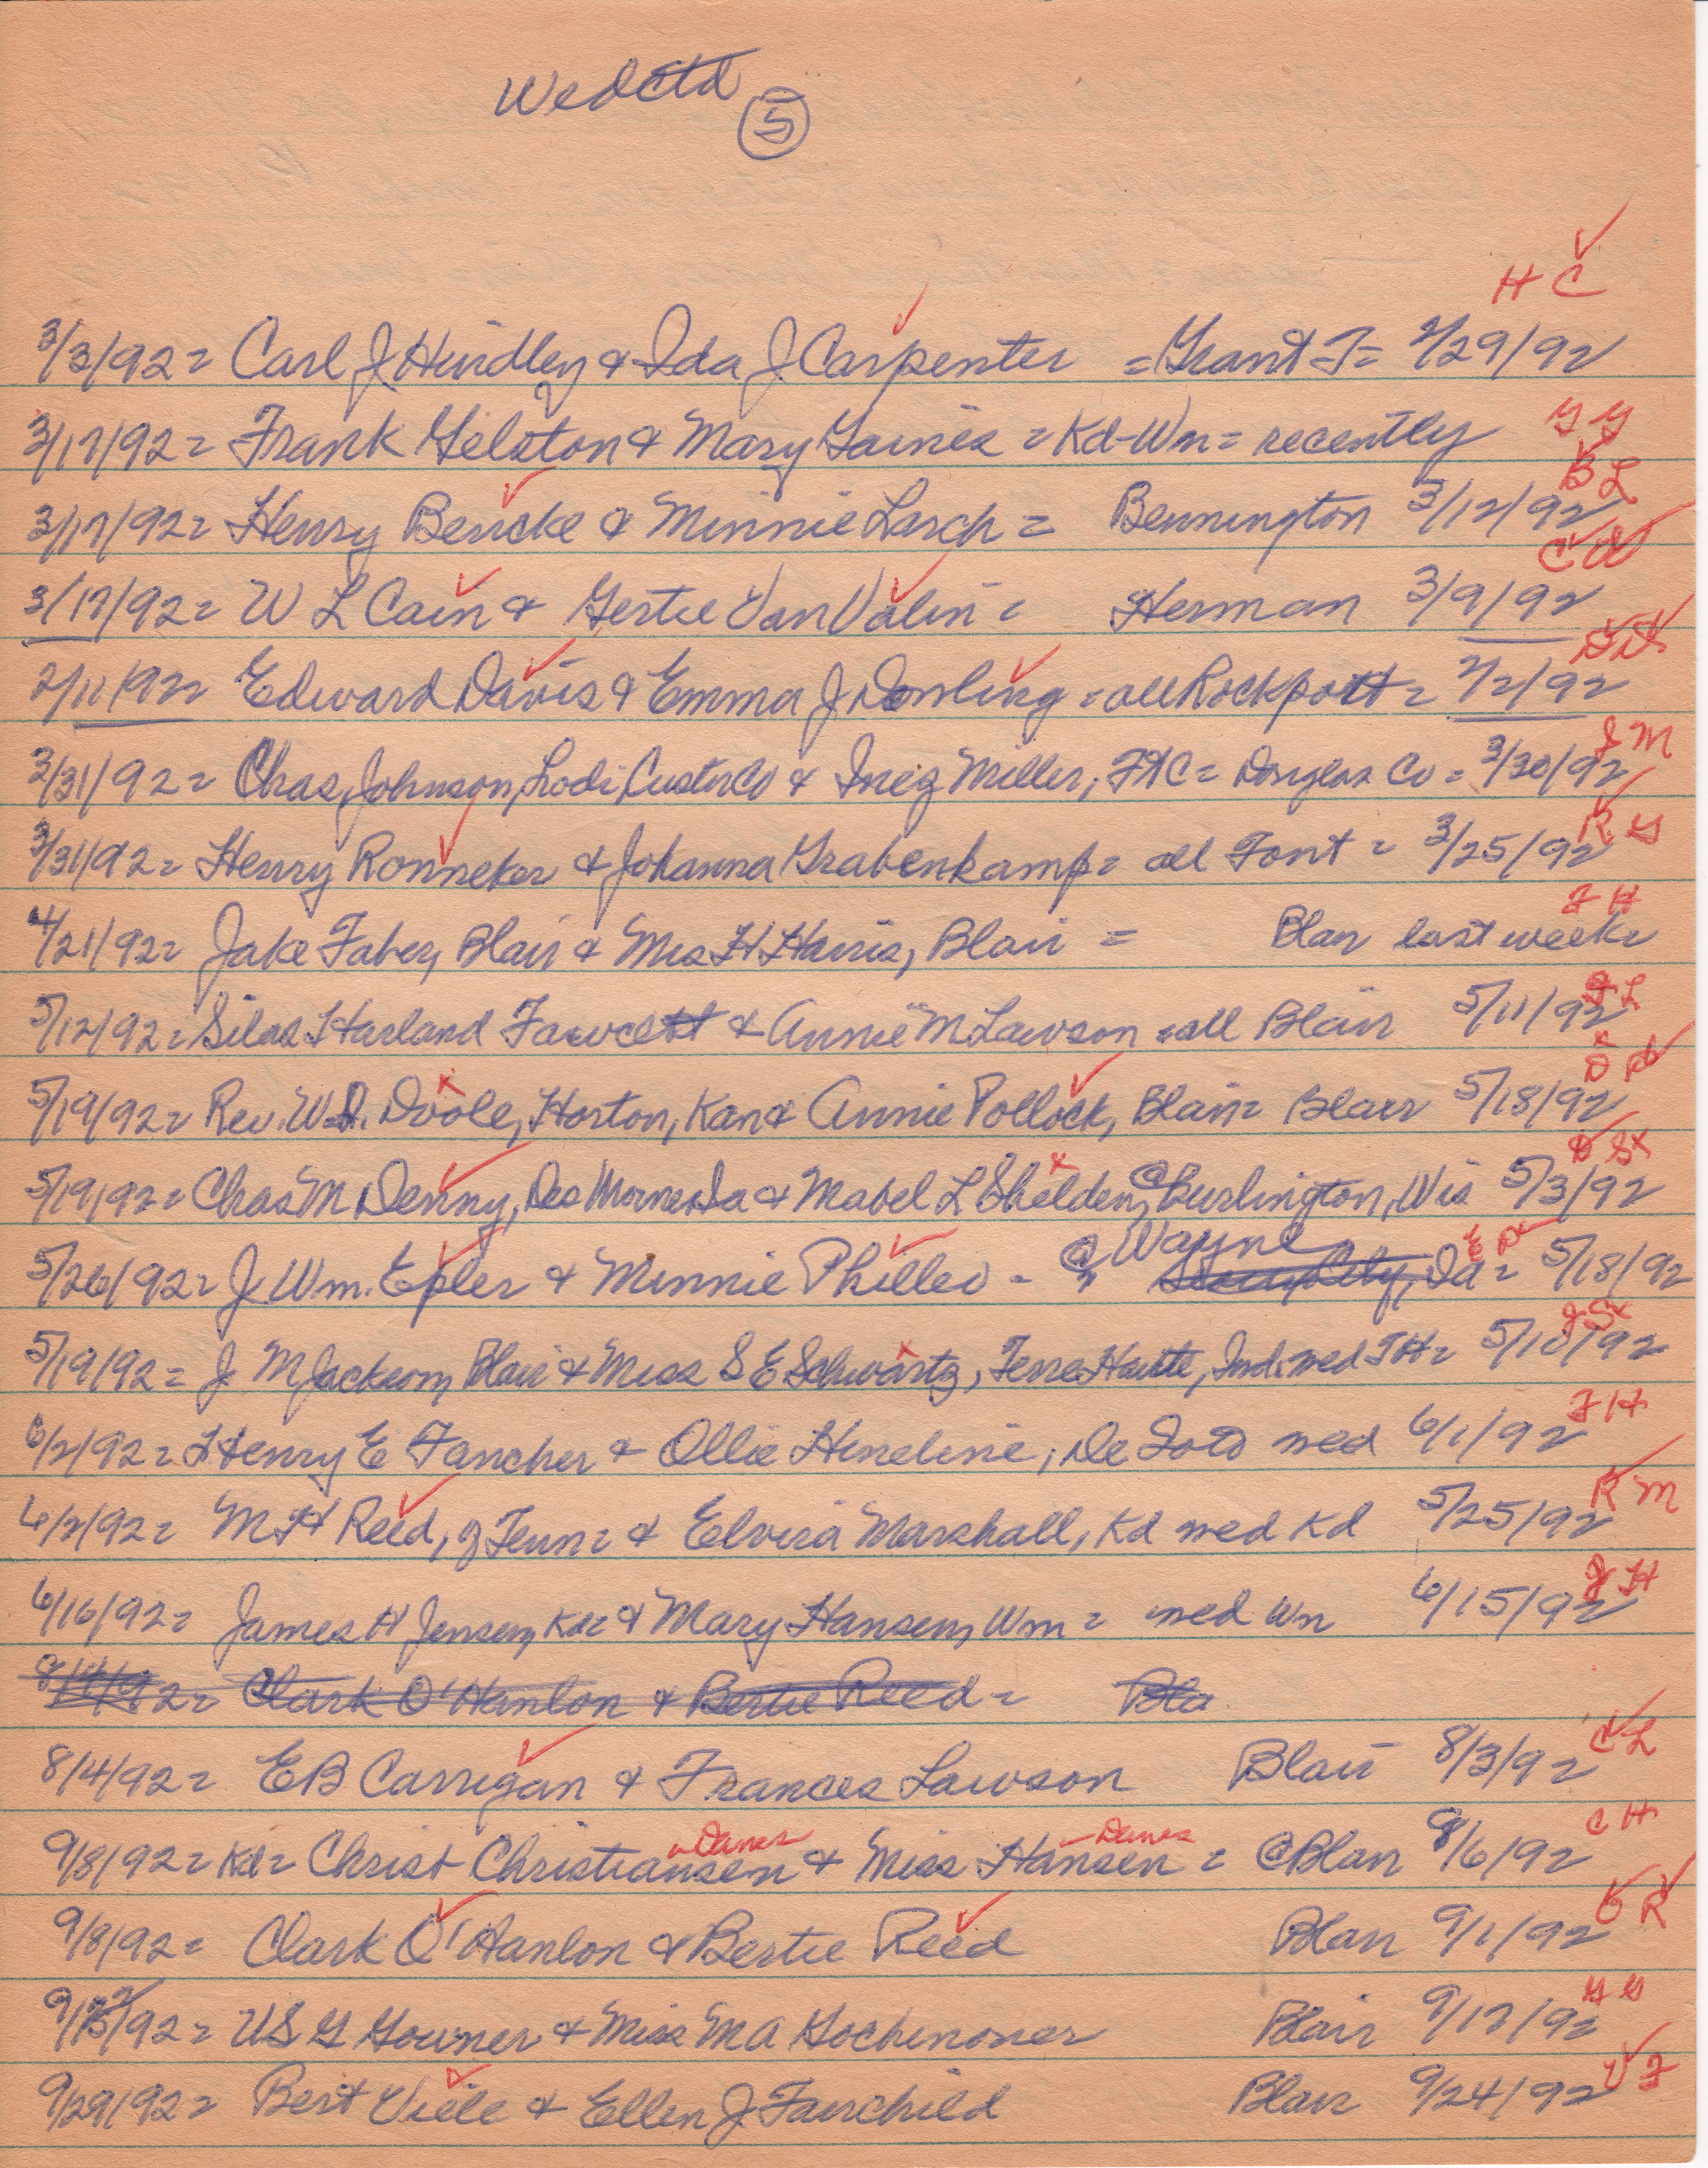 Wedded
5
H C
3/3/92 = Carl J Hindley & Ida J Carpenter = Grant T = 2/29/92
G G
3/17/92 = Frank Gelston & Mary Gaines = Kd-Wn = recently
B L
3/17/92 = Henry Bencke & Minnie Larch = Bennington 3/12/92
C V
3/17/92 = W L Cain & Gertie Van Valin = Herman 3/9/92
D D
2/11/92 Edward Davis & Emma J Dowling = all Rockport = 2/2/92
J M
3/31/92 = Chas Johnson, Lodi, Custer Co & Inez Miller, Ft C = Douglas Co = 3/30/92
R G
3/31/92 = Henry Ronneker & Johanna Grabenkamp = all Font = 3/25/92
F H
4/21/92 = Jake Faber, Blair & Mrs H Harris, Blair = Blair last week
F L
5/12/92 = Silas Harland Fawcett & Annie M Lawson = all Blair 5/11/92
D P
5/19/92 = Rev. W.D. Doole, Horton, Kan & Annie Pollock, Blair = Blair 5/18/92
D S
5/19/92 = Chas M Denny, Des Moines Ia & Mabel L Shelden, @ Burlington, Wis 5/3/92
@ Wayne E P
5/26/92 = J Wm. Epler & Minnie Philleo - Ia = 5/18/92
J S
5/19/92 = J M Jackson, Blair & Miss S E Schwartz, Terre Haute, Ind. wed TH = 5/10/92
F H
6/2/92 = Henry E Fancher & Ollie Hineline, De Soto wed 6/1/92
R M
6/2/92 = M H Reed, of Tenn = & Elvira Marshall, Kd wed Kd 5/25/92
J H
6/16/92 = James H Jensen, Kd & Mary Hansen, Wn = wed Wn 6/15/92
Clark O'Hanlon & Bertie Reed = Bla
C L
8/4/92 = E B Carrigan & Frances Lawson Blair 8/3/92
Danes Danes C H
9/8/92 = Kd = Christ Christiansen & Miss Hansen = @ Blair 8/6/92
O R
9/8/92 = Clark O'Hanlon & Bertie Reed Blair 9/1/92
G G
9/22/92 = U S G Gowner & Miss M A Gochenouer Blair 9/17/92
V F
9/29/92 = Bert Viele & Ellen J Fairchild Blair 9/24/92